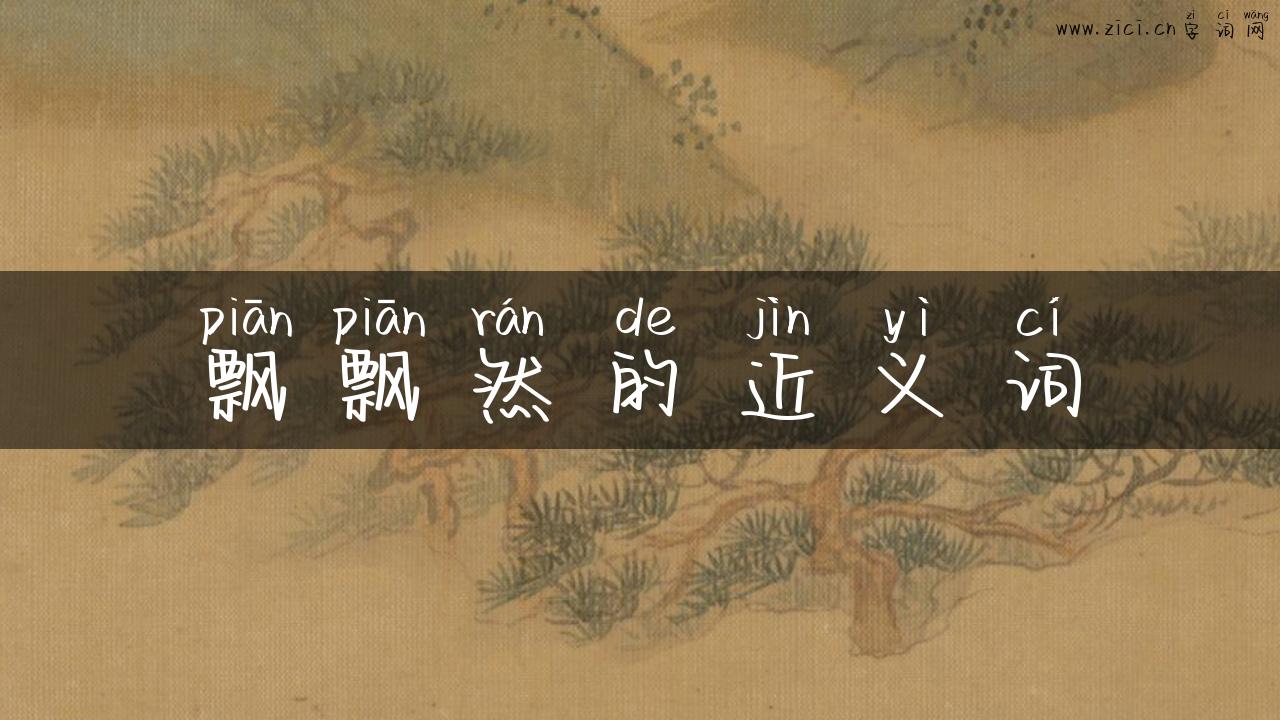 zì cí wǎng
www.zici.cn 字词网
piān piān rán de jìn yì cí
飘飘然的近义词